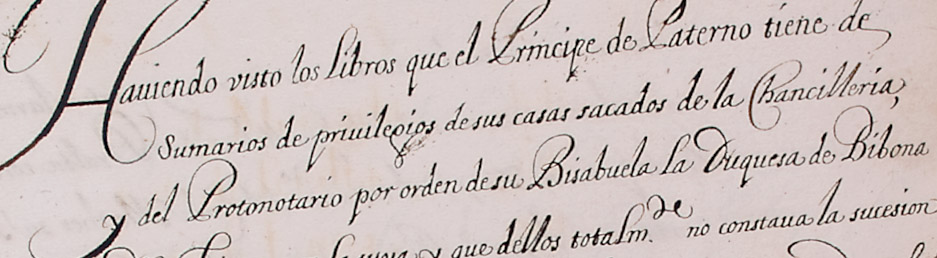 Hauiendo visto los libros que el Principe de Paterno tiene de
Sumarios de priuilegios de sus casas sacados de la Chancilleria,
y del Protonotario por orden de su Bisabuela la Duquesa de Bibona
y que dellos totalm.de no constaua la sucesion